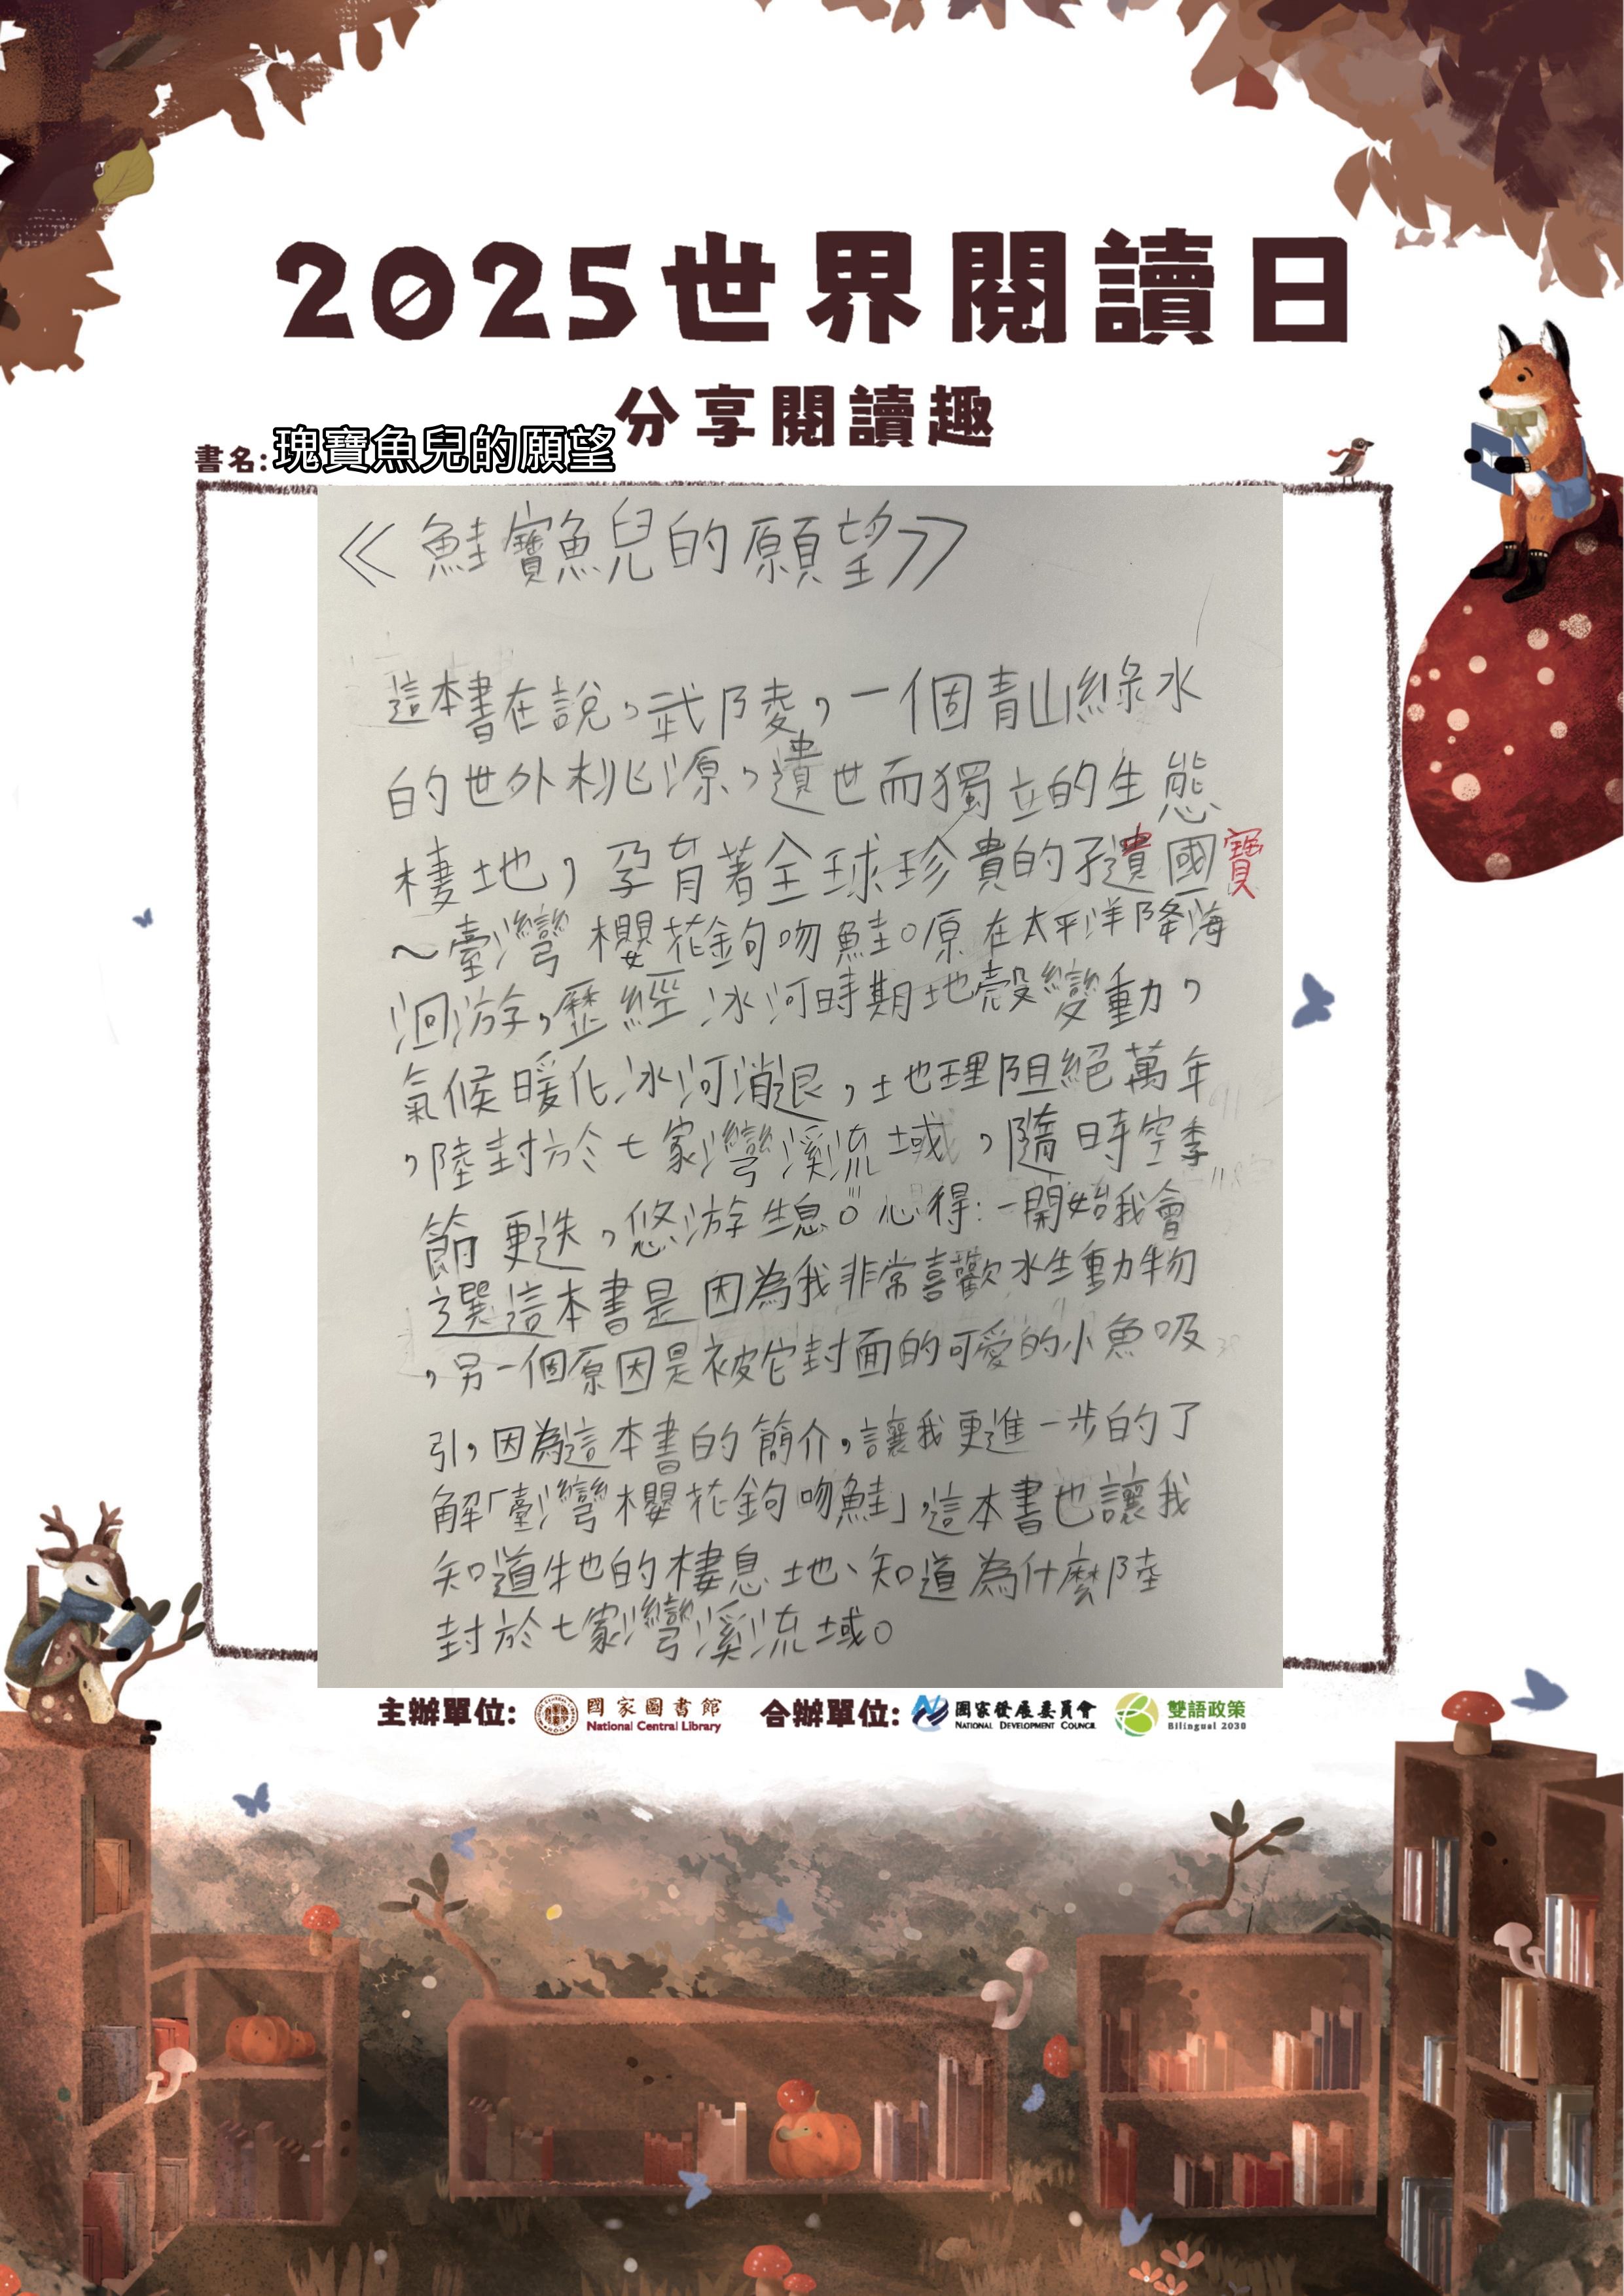 2025世界閱讀日
分享閱讀趣
書名:瑰寶魚兒的願望
《鮭寶魚兒的願望》
這本書在說,武陵,一個青山綠水
的世外桃源,遺世而獨立的生態
棲地,孕育著全球珍貴的孑遺國寶
~臺灣櫻花鉤吻鮭。原在太平洋降海
洄游,歷經冰河時期地殼變動,
氣候暖化冰河消退,地理阻絕萬年
,陸封於七家灣溪流域,隨時空季
節更迭,悠游生息。心得:一開始我會
選這本書是因為我非常喜歡水生動物
,另一個原因是被它封面的可愛的小魚吸
引,因為這本書的簡介,讓我更進一步的了
解「臺灣櫻花鉤吻鮭」,這本書也讓我
知道牠的棲息地、知道為什麼陸
封於七家灣溪流域。
主辦單位: 國家圖書館 National Central Library 合辦單位: 國家發展委員會 NATIONAL DEVELOPMENT COUNCIL 雙語政策 Bilingual 2030